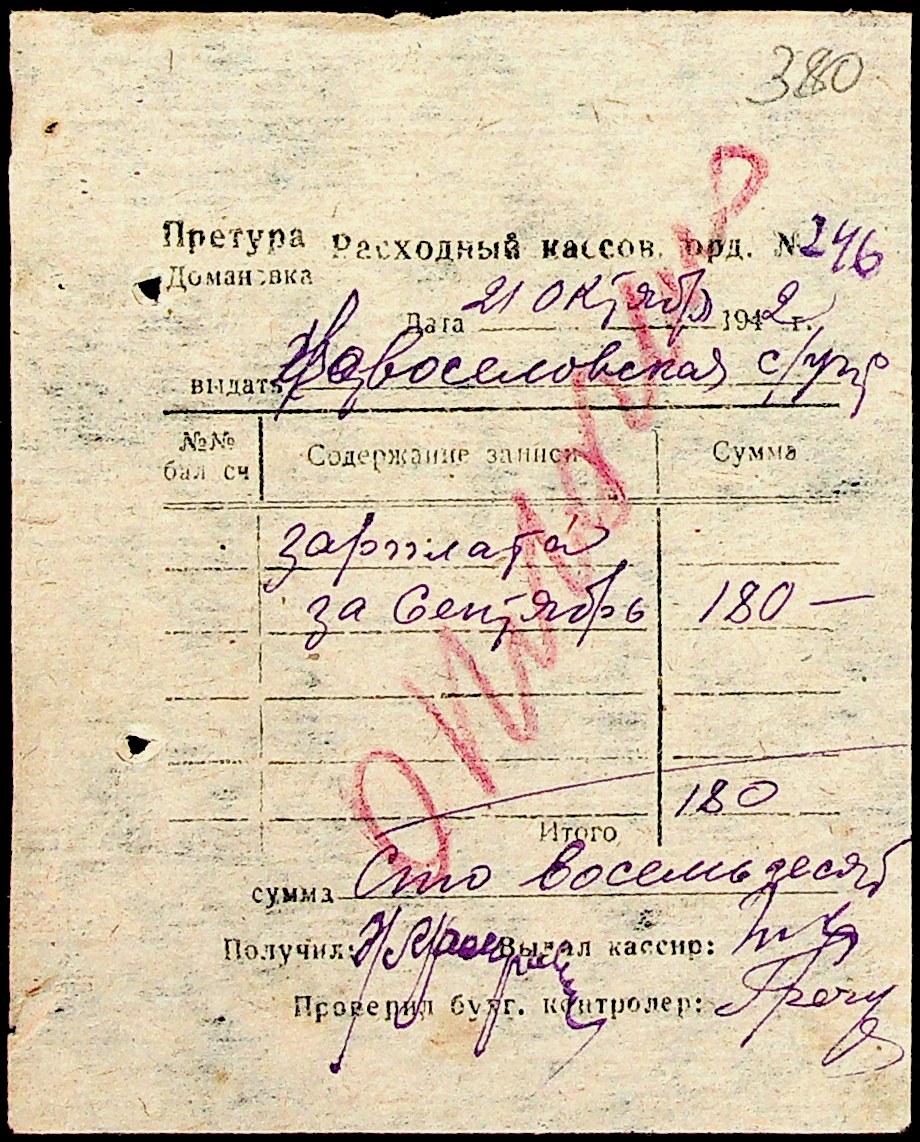 380
Претура Расходный кассов. орд. № 246
Домановка
Дата 21 октября 1942 г.
выдать Новоселовская с/упр
№№ бал сч Содержание записи Сумма
зарплата
за Сентябрь 180 —
Итого 180
сумма Сто восемьдесят
Получил: Выдал кассир:
Проверил бухг. контролер:
оплачено